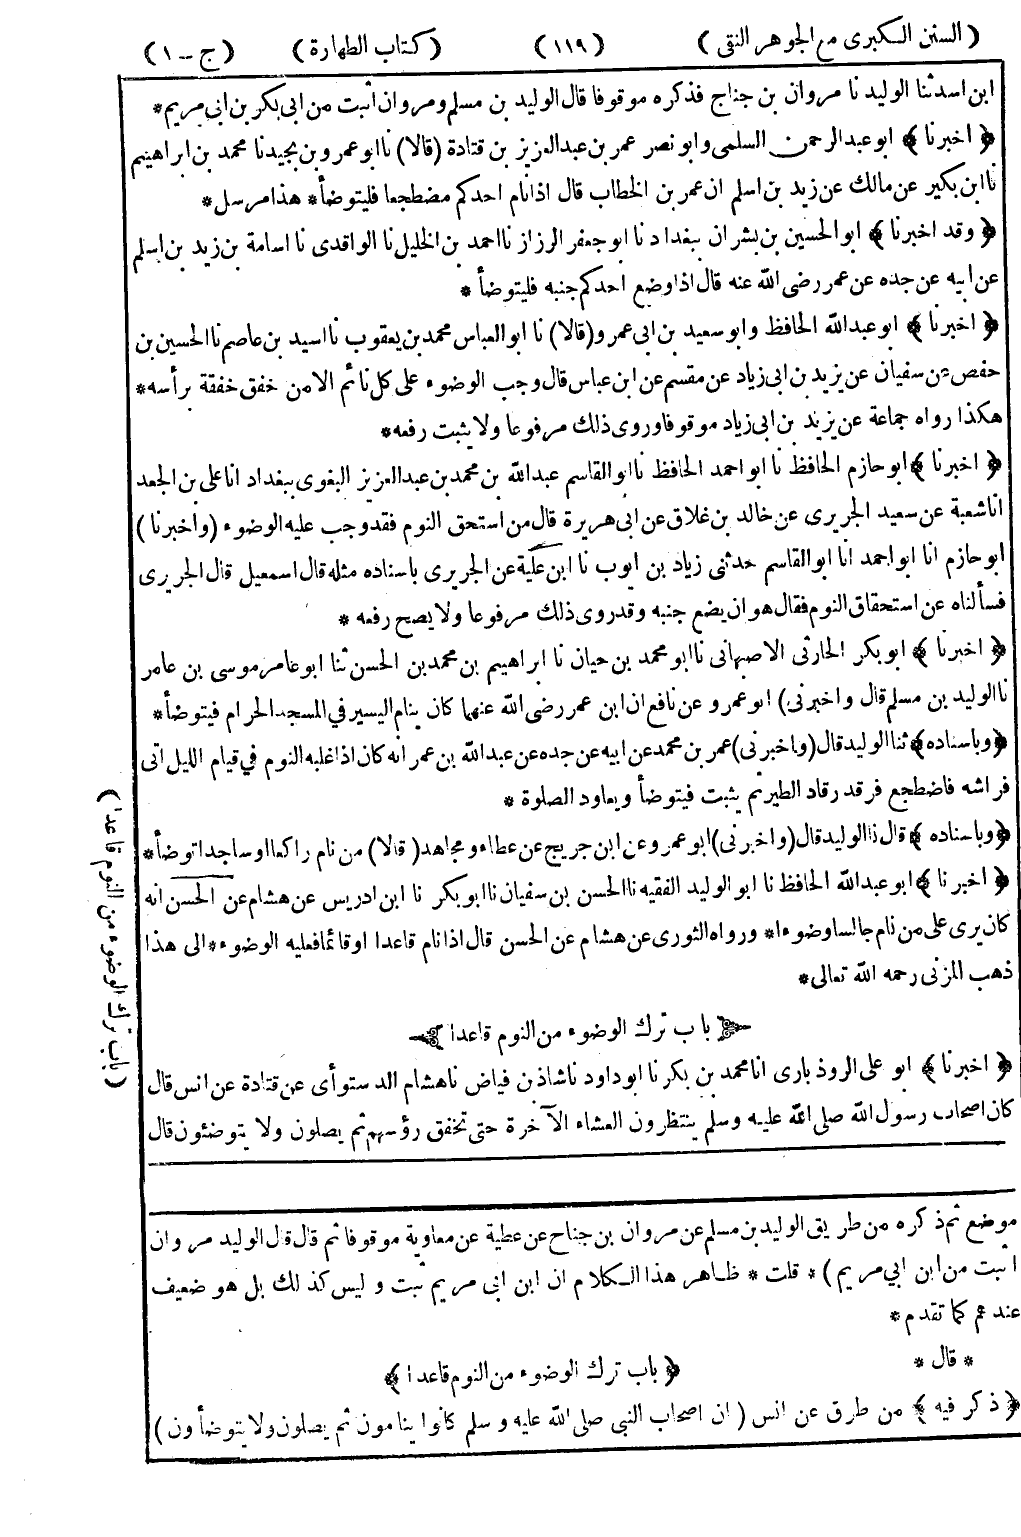 ( السنن الكبرى مع الجوهر النقى ) ( ١١٩ ) ( كتاب الطهارة ) ( ج – ١ )
ابن اسد ثنا الوليد نا مروان بن جناح فذكره موقوفا قال الوليد بن مسلم ومروان اثبت من ابى بكر بن ابى مريم *
﴿ اخبرنا ﴾ ابو عبد الرحمن السلمى وابو نصر عمر بن عبد العزيز بن قتادة (قالا) نا ابو عمرو بن بجيد نا محمد بن ابراهيم
نا ابن بكير عن مالك عن زيد بن اسلم ان عمر بن الخطاب قال اذا نام احدكم مضطجعا فليتوضأ * هذا مرسل *
﴿ وقد اخبرنا ﴾ ابو الحسين بن بشران ببغداد نا ابو جعفر الرزاز نا احمد بن الخليل نا الواقدى نا اسامة بن زيد بن اسلم
عن ابيه عن جده عن عمر رضى الله عنه قال اذا وضع احدكم جنبه فليتوضأ *
﴿ اخبرنا ﴾ ابو عبد الله الحافظ وابو سعيد بن ابى عمرو (قالا) نا ابو العباس محمد بن يعقوب نا اسيد بن عاصم نا الحسين بن
حفص عن سفيان عن يزيد بن ابى زياد عن مقسم عن ابن عباس قال وجب الوضوء على كل نائم الا من خفق خفقة برأسه *
هكذا رواه جماعة عن يزيد بن ابى زياد موقوفا وروى ذلك مرفوعا ولا يثبت رفعه *
﴿ اخبرنا ﴾ ابو حازم الحافظ نا ابو احمد الحافظ نا ابو القاسم عبد الله بن محمد بن عبد العزيز البغوى ببغداد انا على بن الجعد
انا شعبة عن سعيد الجريرى عن خالد بن غلاق عن ابى هريرة قال من استحق النوم فقد وجب عليه الوضوء ( واخبرنا )
ابو حازم انا ابو احمد انا ابو القاسم حدثنى زياد بن ايوب نا ابن علية عن الجريرى باسناده مثله قال اسمعيل قال الجريرى
فسألناه عن استحقاق النوم فقال هو ان يضع جنبه وقد روى ذلك مرفوعا ولا يصح رفعه *
﴿ اخبرنا ﴾ ابو بكر الحارثى الاصبهانى نا ابو محمد بن حيان نا ابراهيم بن محمد بن الحسن ثنا ابو عامر موسى بن عامر
نا الوليد بن مسلم قال واخبرنى) ابو عمرو عن نافع ان ابن عمر رضى الله عنهما كان ينام اليسير في المسجد الحرام فيتوضأ *
﴿ وباسناده ﴾ ثنا الوليد قال (واخبرنى) عمر بن محمد عن ابيه عن جده عن عبد الله بن عمر انه كان اذا غلبه النوم في قيام الليل اتى
فراشه فاضطجع فرقد رقاد الطير ثم يثبت فيتوضأ ويعاود الصلوة *
﴿ وباسناده ﴾ قال نا الوليد قال (واخبرنى) ابو عمرو عن ابن جريج عن عطاء ومجاهد (قالا) من نام راكعا او ساجدا توضأ *
﴿ اخبرنا ﴾ ابو عبد الله الحافظ نا ابو الوليد الفقيه نا الحسن بن سفيان نا ابو بكر نا ابن ادريس عن هشام عن الحسن انه
كان يرى على من نام جالسا وضوءا * ورواه الثورى عن هشام عن الحسن قال اذا نام قاعدا او قائما فعليه الوضوء * الى هذا
ذهب المزنى رحمه الله تعالى *
﴿ باب ترك الوضوء من النوم قاعدا ﴾
( باب ترك الوضوء من النوم قاعدا )
﴿ اخبرنا ﴾ ابو على الروذبارى انا محمد بن بكر نا ابو داود نا شاذ بن فياض نا هشام الدستوأى عن قتادة عن انس قال
كان اصحاب رسول الله صلى الله عليه وسلم ينتظرون العشاء الآخرة حتى تخفق رؤسهم ثم يصلون ولا يتوضئون قال
موضع ثم ذكره من طريق الوليد بن مسلم عن مروان بن جناح عن عطية عن معاوية موقوفا ثم قال قال الوليد مروان
اثبت من ابن ابي مريم ) * قلت * ظاهر هذا الكلام ان ابن ابى مريم ثبت وليس كذلك بل هو ضعيف
عندهم كما تقدم *
* قال * ﴿ باب ترك الوضوء من النوم قاعدا ﴾
﴿ ذكر فيه ﴾ من طرق عن انس ( ان اصحاب النبى صلى الله عليه وسلم كانوا ينامون ثم يصلون ولا يتوضأون )